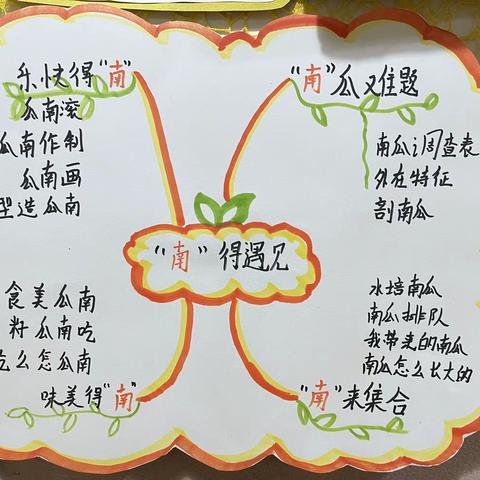 乐快得“南”
瓜南滚
瓜南作制
瓜南画
型造瓜南
“南”瓜难题
南瓜调查表
外在特征
剖南瓜
“南”得遇见
食美瓜南
籽瓜南吃
吃么怎瓜南
味美得“南”
水培南瓜
南瓜排队
我带来的南瓜
南瓜怎么长大的
“南”来集合